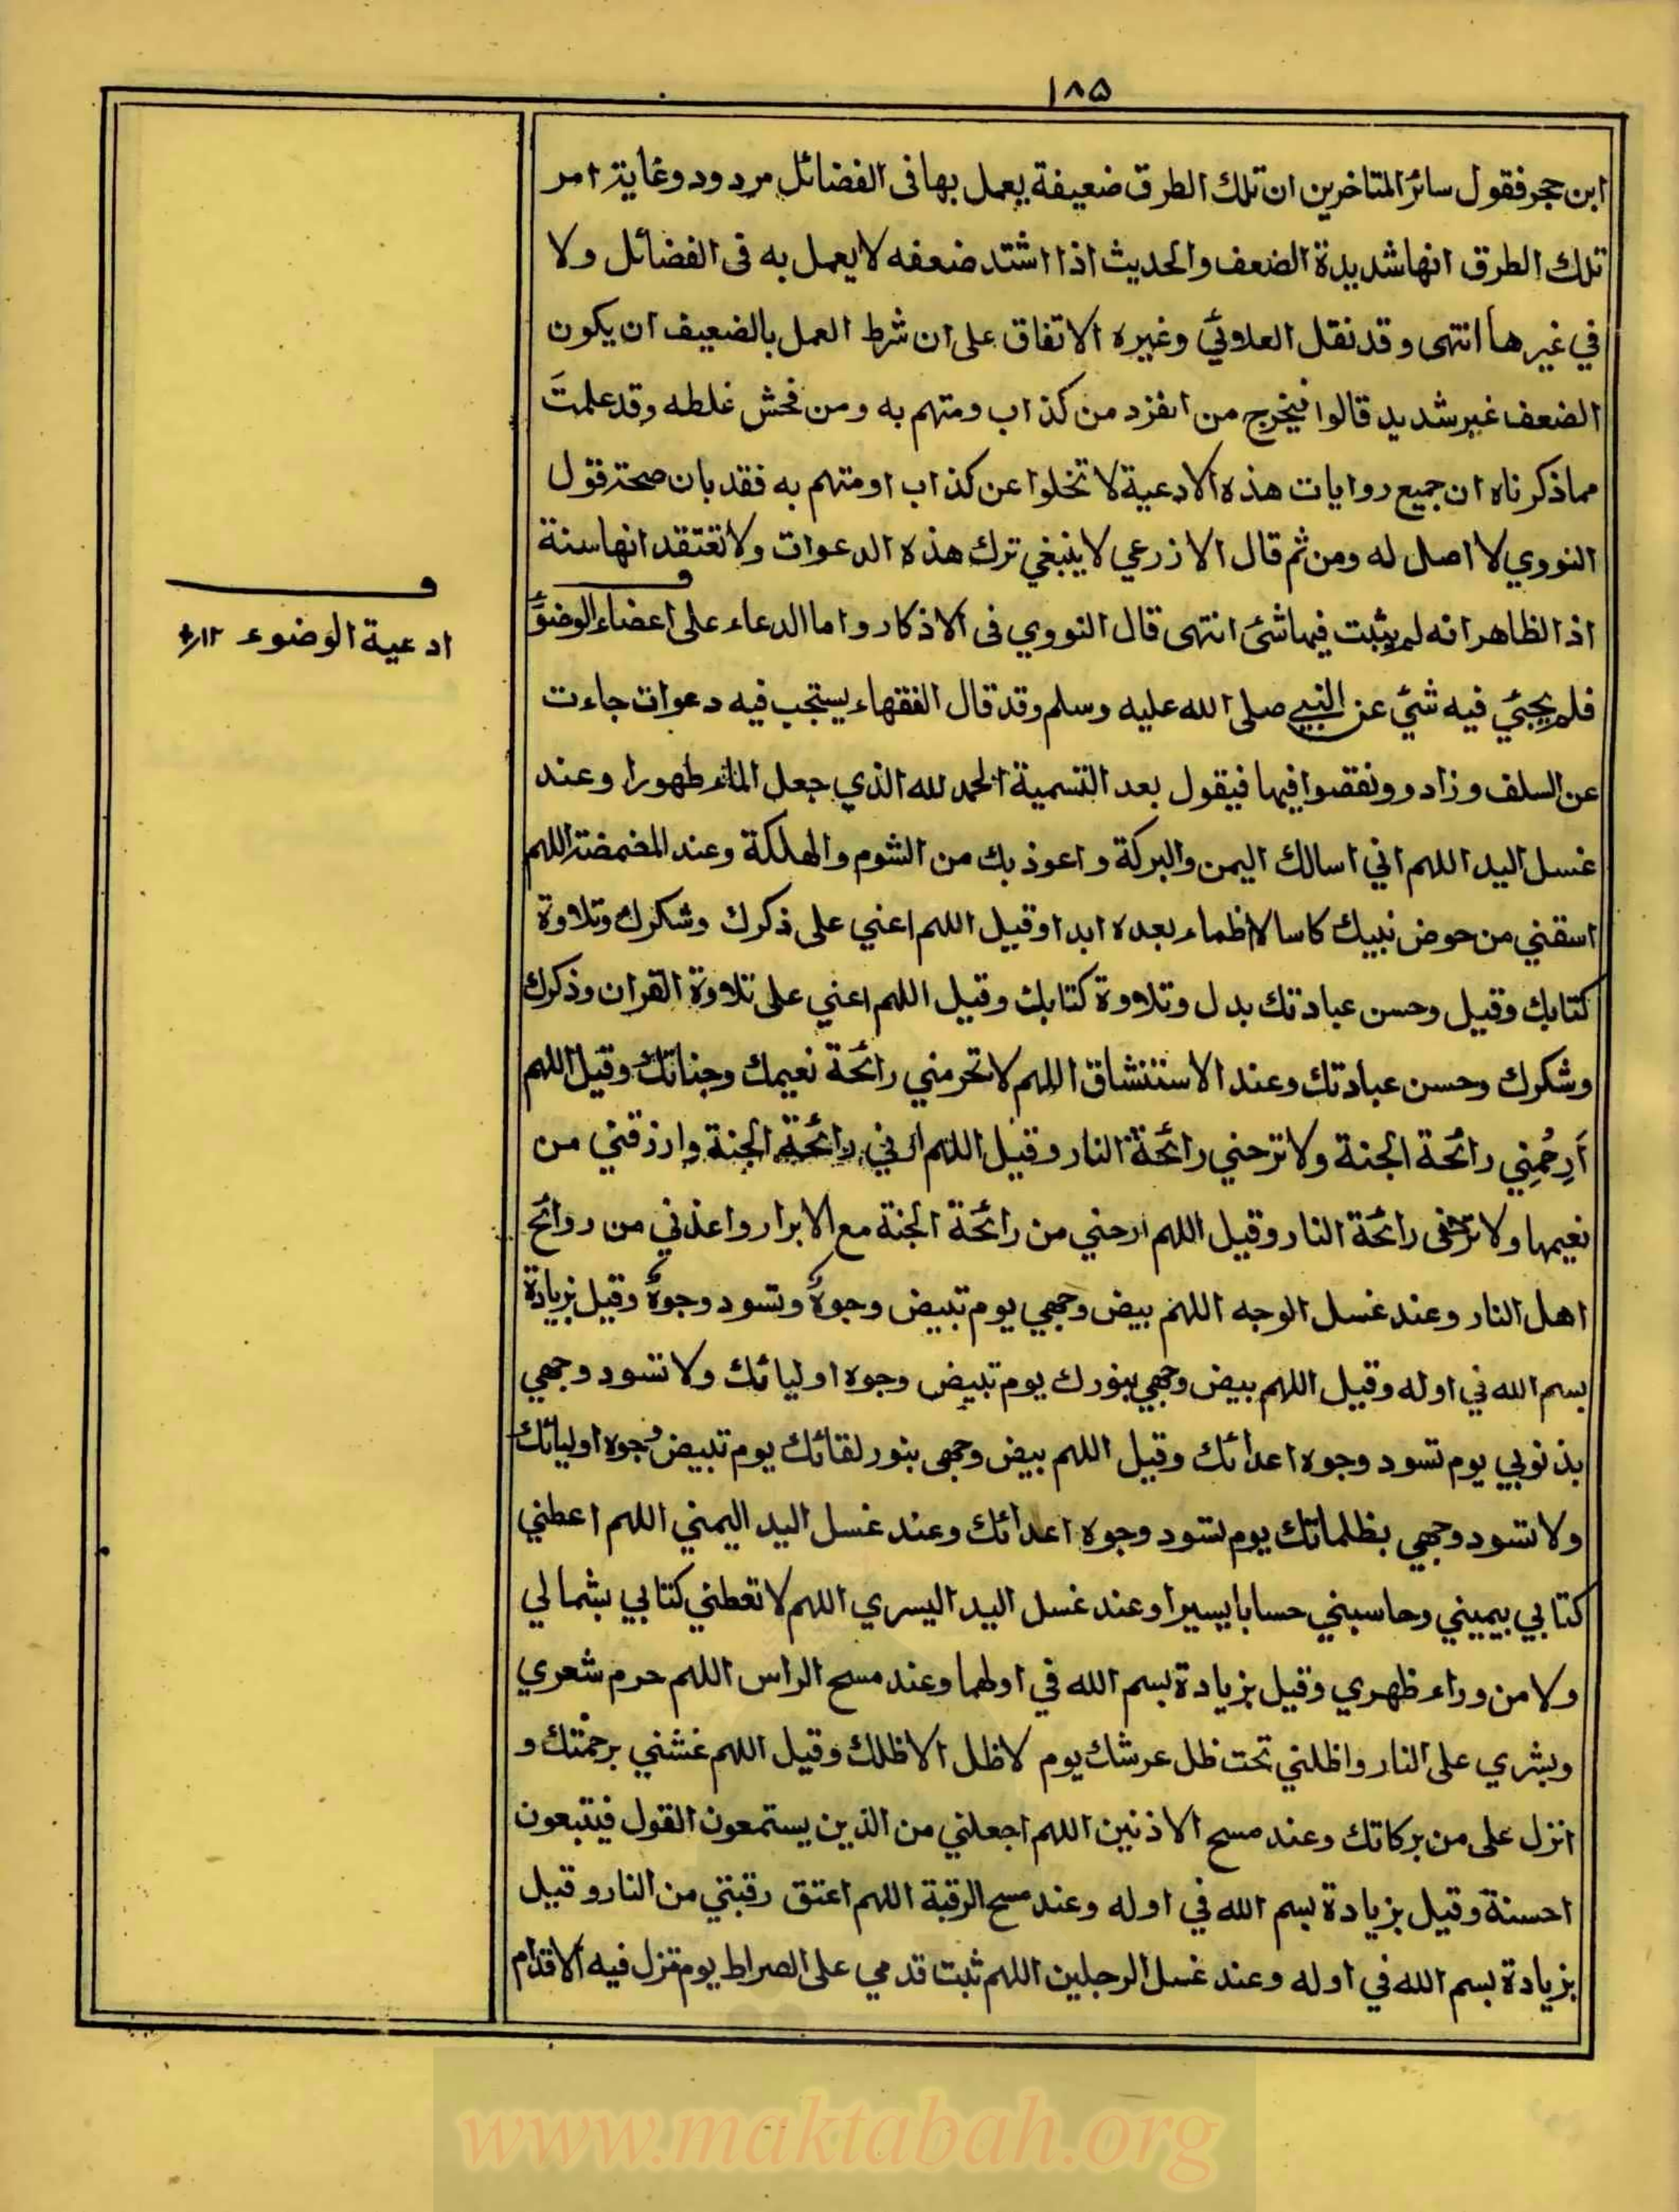 ١٨٥
ابن حجر فقول سائر المتاخرين ان تلك الطرق ضعيفة يعمل بها فى الفضائل مردود وغاية امر
تلك الطرق انها شديدة الضعف والحديث اذا اشتد ضعفه لا يعمل به فى الفضائل ولا
في غيرها انتهى وقد نقل العلائي وغيره الاتفاق على ان شرط العمل بالضعيف ان يكون
الضعف غير شديد قالوا فيخرج من انفرد من كذاب ومتهم به ومن فحش غلطه وقد علمتَ
مما ذكرناه ان جميع روايات هذه الادعية لا تخلوا عن كذاب او متهم به فقد بان صحة قول
النووي لا اصل له ومن ثم قال الاذرعي لا ينبغي ترك هذه الدعوات ولا تعتقد انها سنة
اذ الظاهر انه لم يثبت فيها شئ انتهى قال النووي فى الاذكار واما الدعاء على اعضاء الوضوء
فلم يجئي فيه شئي عن النبي صلى الله عليه وسلم وقد قال الفقهاء يستحب فيه دعوات جاءت
عن السلف وزادو ونقصوا فيها فيقول بعد التسمية الحمد لله الذي جعل الماء طهورا وعند
غسل اليد اللهم اني اسالك اليمن والبركة واعوذ بك من الشوم والهلكة وعند المضمضة اللهم
اسقني من حوض نبيك كاسا لا اظماء بعده ابدا وقيل اللهم اعني على ذكرك وشكرك وتلاوة
كتابك وقيل وحسن عبادتك بدل وتلاوة كتابك وقيل اللهم اعني على تلاوة القران وذكرك
وشكرك وحسن عبادتك وعند الاستنشاق اللهم لا تحرمني رائحة نعيمك وجناتك وقيل اللهم
اَرِحْنِي رائحة الجنة ولا ترحني رائحة النار وقيل اللهم رائحة الجنة وارزقني من
نعيمها ولا رائحة النار وقيل اللهم ارحني من رائحة الجنة مع الابرار واعذني من روائح
اهل النار وعند غسل الوجه اللهم بيض وجهي يوم تبيض وجوهٌ وتسود وجوهٌ وقيل بزيادة
بسم الله في اوله وقيل اللهم بيض وجهي بنورك يوم تبيض وجوه اوليائك ولا تسود وجهي
بذنوبي يوم تسود وجوه اعدائك وقيل اللهم بيض وجهى بنور لقائك يوم تبيض وجوه اوليائك
ولا تسود وجهي بظلماتك يوم تسود وجوه اعدائك وعند غسل اليد اليمني اللهم اعطني
كتابي بيميني وحاسبني حسابا يسيرا وعند غسل اليد اليسري اللهم لا تعطني كتابي بشمالي
ولا من وراء ظهري وقيل بزيادة بسم الله في اولهما وعند مسح الراس اللهم حرم شعري
وبشري على النار واظلني تحت ظل عرشك يوم لا ظل الا ظلك وقيل اللهم غشني برحمتك و
انزل على من بركاتك وعند مسح الاذنين اللهم اجعلني من الذين يستمعون القول فيتبعون
احسنة وقيل بزيادة بسم الله في اوله وعند مسح الرقبة اللهم اعتق رقبتي من النار وقيل
بزيادة بسم الله في اوله وعند غسل الرجلين اللهم ثبت قدمي على الصراط يوم تزل فيه الاقدام
ف
ادعية الوضوء ١٢
www.maktabah.org